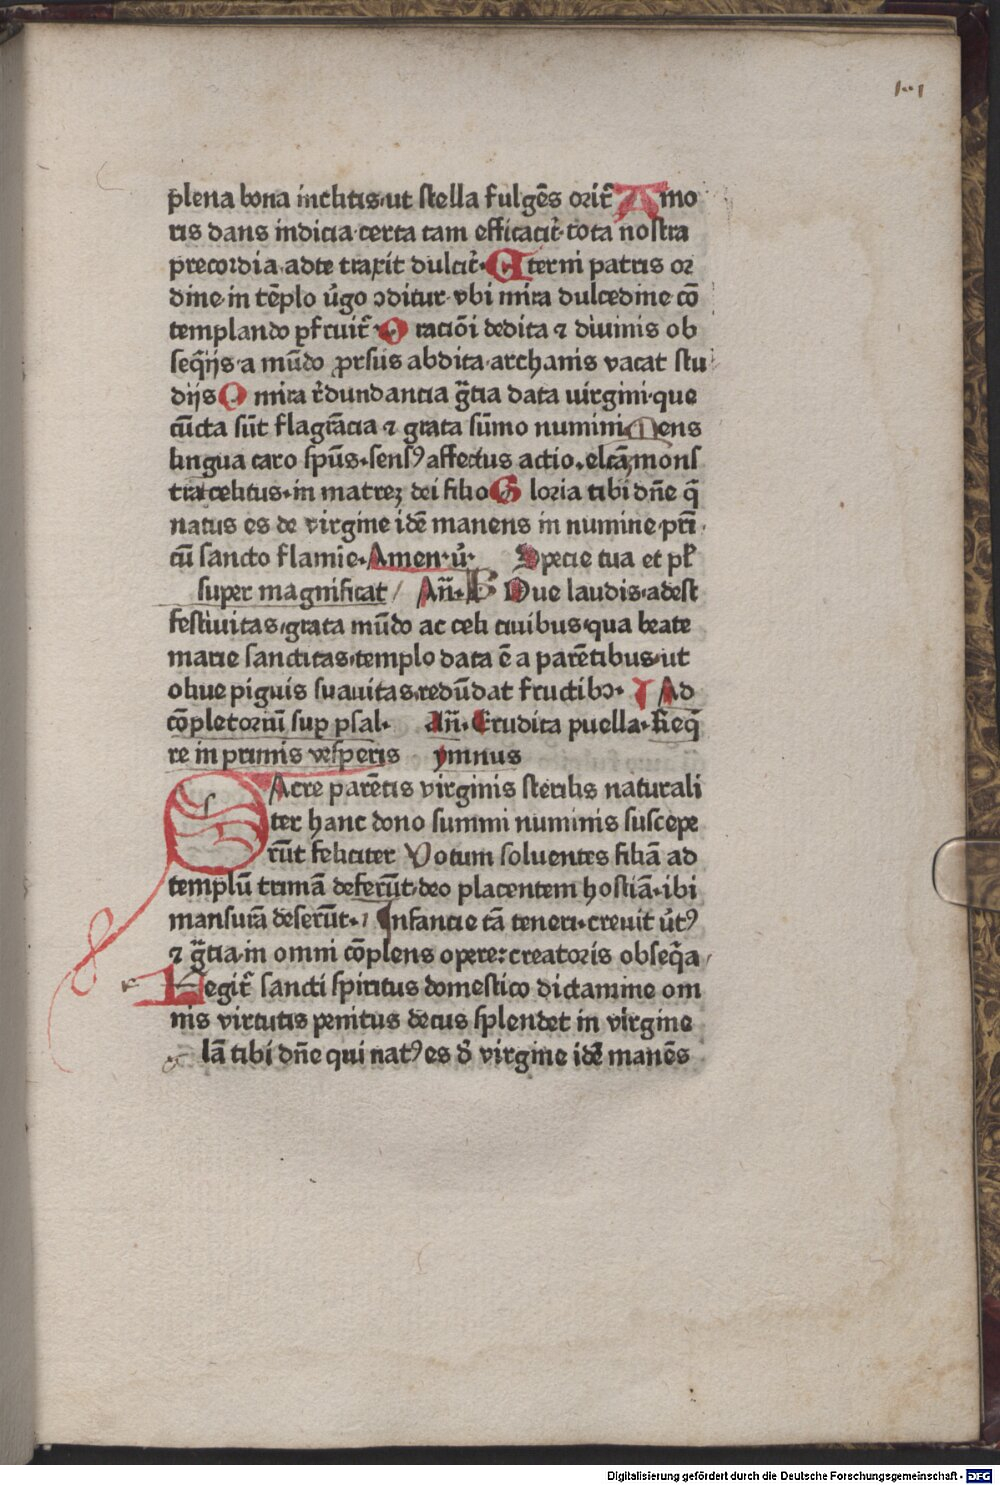 plena bona inclitis·ut stella fulgēs orit̃ Amo
ris dans indicia·certa tam efficacit̃·tota nostra
precordia·adte traxit dulcit̃·Eterni patris or
dine·in tēplo v̄go ↄditur·vbi mira dulcedine cō
templando ꝑfruit̃· O ratiōi dedita ⁊ diuinis ob
seq̄ijs·a mūdo ꝓrsus abdita·archanis vacat stu
dijs O mira r̄dundantia gr̄tia data uirgini·que
cūcta sūt flagrācia ⁊ grata sūmo numini Mens
lingua caro spūs·sensꝰ affectus actio·
tra celitus·in matreꝫ dei filio G loria tibi dn̄e q̄
natus es de virgine idē manens in numine·pr̄i
cū sancto flamīe·Amen·v̄· Specie tua et
super magnificat An̄· Due laudis·adest
festiuitas·grata mūdo ac celi ciuibus·qua beate
marie sanctitas·templo data ē a parētibus·ut
oliue piguis suauitas redūdat fructibꝫ· Ad
cōpletoriū suꝑ psal· An̄·Erudita puella·Req̄
re in primis vesperis ymnus
SAcre parētis virginis sterilis naturali
ter hanc dono summi numinis suscepe
rūt feliciter Votum soluentes filiā ad
templū trimā deferūt·deo placentem hostiā·ibi
mansurā deserūt· Infancie tā teneri·creuit v̄tꝰ
⁊ gr̄tia·in omni cōplens opere:creatoris obseq̄a
Legit̃ sancti spiritus domestico dictamine om
nis virtutis penitus decus splendet in virgine
lā tibi dn̄e qui natꝰ es d̄ virgine idē manēs
Digitalisierung gefördert durch die Deutsche Forschungsgemeinschaft - DFG